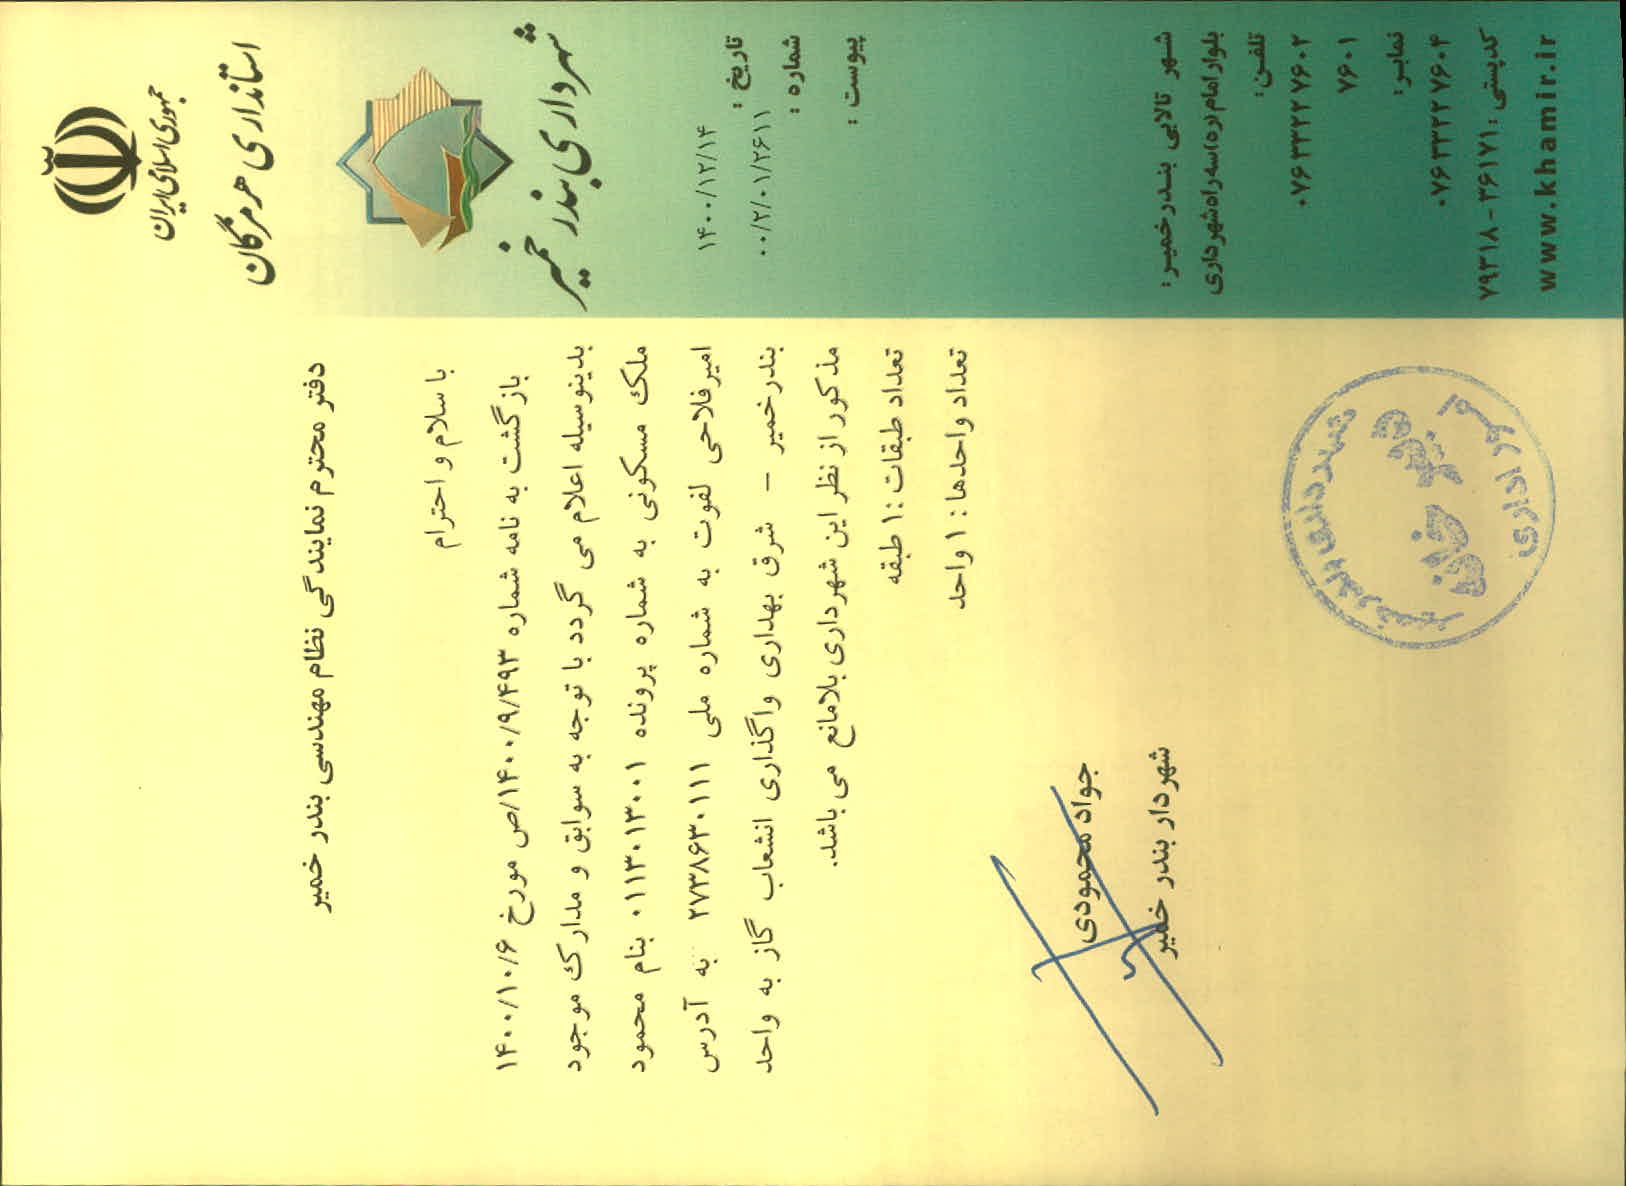 جمهوری اسلامی ایران
استانداری هرمزگان
شهرداری بندر خمیر
تاریخ : ۱۴۰۰/۱۲/۱۴
شماره : ۰۰/۲/۰۱/۲۶۱۱
پیوست :
دفتر محترم نمایندگی نظام مهندسی بندر خمیر
با سلام و احترام
بازگشت به نامه شماره ۱۴۰۰/۹/۴۹۳/ص مورخ ۱۴۰۰/۱۰/۶
بدینوسیله اعلام می گردد با توجه به سوابق و مدارک موجود
ملک مسکونی به شماره پرونده ۰۱۱۳۰۱۳۰۰۱ بنام محمود
امیرفلاحی لفوت به شماره ملی ۲۷۳۸۶۳۰۱۱۱ به آدرس
بندرخمیر – شرق بهداری واگذاری انشعاب گاز به واحد
مذکور از نظر این شهرداری بلامانع می باشد.
تعداد طبقات :۱ طبقه
تعداد واحدها : ۱ واحد
جواد محمودی
شهردار بندر خمیر
شهرداری بندر خمیر
امور اداری
شهر تالابی بندرخمیر:
بلوار امام(ره)سه راه شهرداری
تلفن:
۰۷۶۳۳۲۲۷۶۰۲
۷۶۰۱
نمابر:
۰۷۶۳۳۲۲۷۶۰۴
کدپستی: ۳۶۱۷۱ - ۷۹۳۱۸
www.khamir.ir